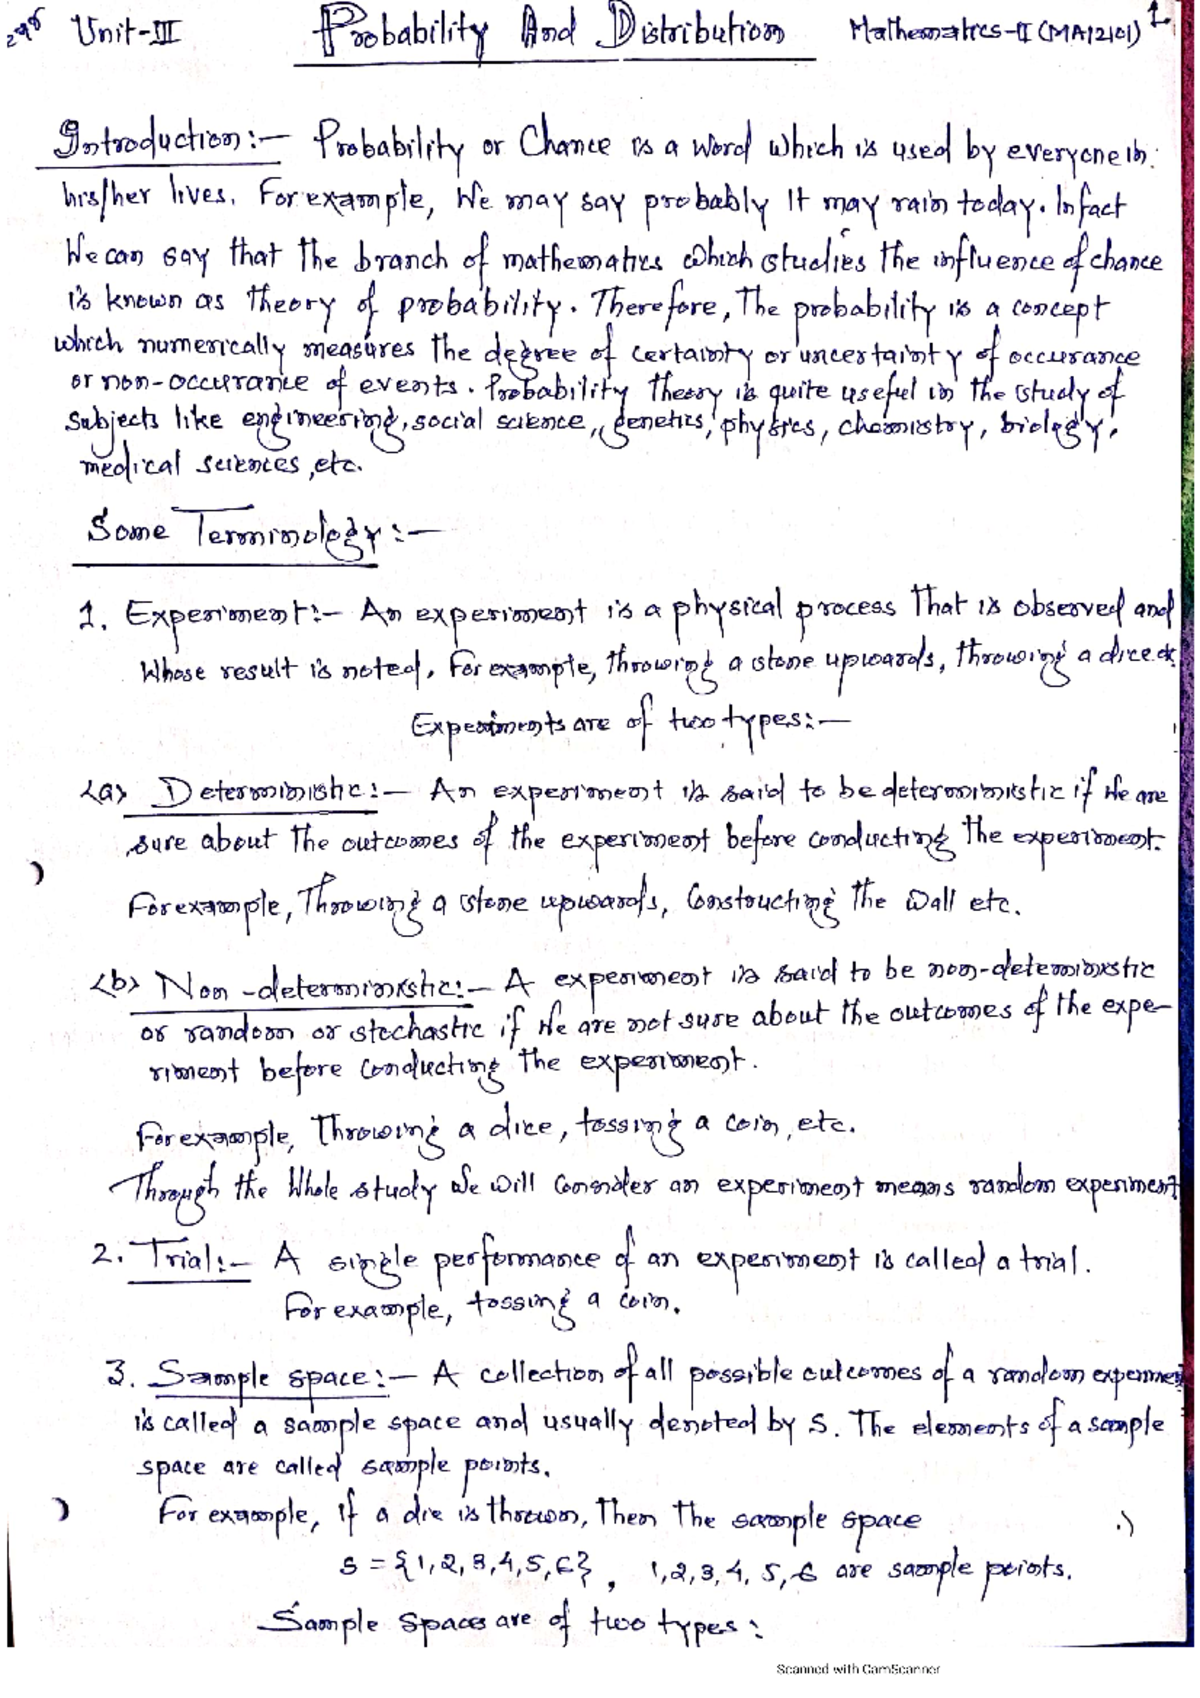 Unit-III Probability And Distribution Mathematics-II (MA12101) 1
Introduction:- Probability or Chance is a word which is used by everyone in
his/her lives. For example, We may say probably It may rain today. In fact
We can say that the branch of mathematics which studies the influence of chance
is known as theory of probability. Therefore, The probability is a concept
which numerically measures the degree of certainty or uncertainty of occurance
or non-occurance of events. Probability theory is quite useful in the study of
subjects like engineering, social science, genetics, physics, chemistry, biology,
medical sciences, etc.
Some Terminology:-
1. Experiment:- An experiment is a physical process That is observed and
Whose result is noted. For example, throwing a stone upwards, throwing a dice
Experiments are of two types:-
(a) Deterministic:- An experiment is said to be deterministic if We are
sure about the outcomes of the experiment before conducting the experiment.
For example, Throwing a stone upwards, Constructing the Wall etc.
(b) Non-deterministic:- A experiment is said to be non-deterministic
or random or stochastic if We are not sure about the outcomes of the expe-
riment before conducting the experiment.
For example, Throwing a dice, tossing a coin, etc.
Through the Whole study We will consider an experiment means random experiment
2. Trial:- A single performance of an experiment is called a trial.
For example, tossing a coin.
3. Sample space:- A collection of all possible outcomes of a random experiment
is called a sample space and usually denoted by S. The elements of a sample
space are called sample points.
For example, If a die is thrown, Then The sample space
S = {1,2,3,4,5,6}, 1,2,3,4,5,6 are sample points.
Sample Spaces are of two types:
Scanned with CamScanner